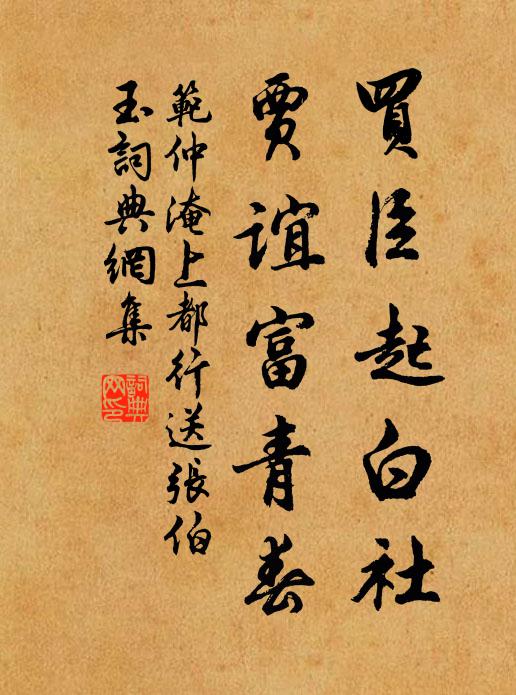 買臣起白社
賈誼富青春
範仲淹上都行送張伯
玉詞典網集
詞典网印